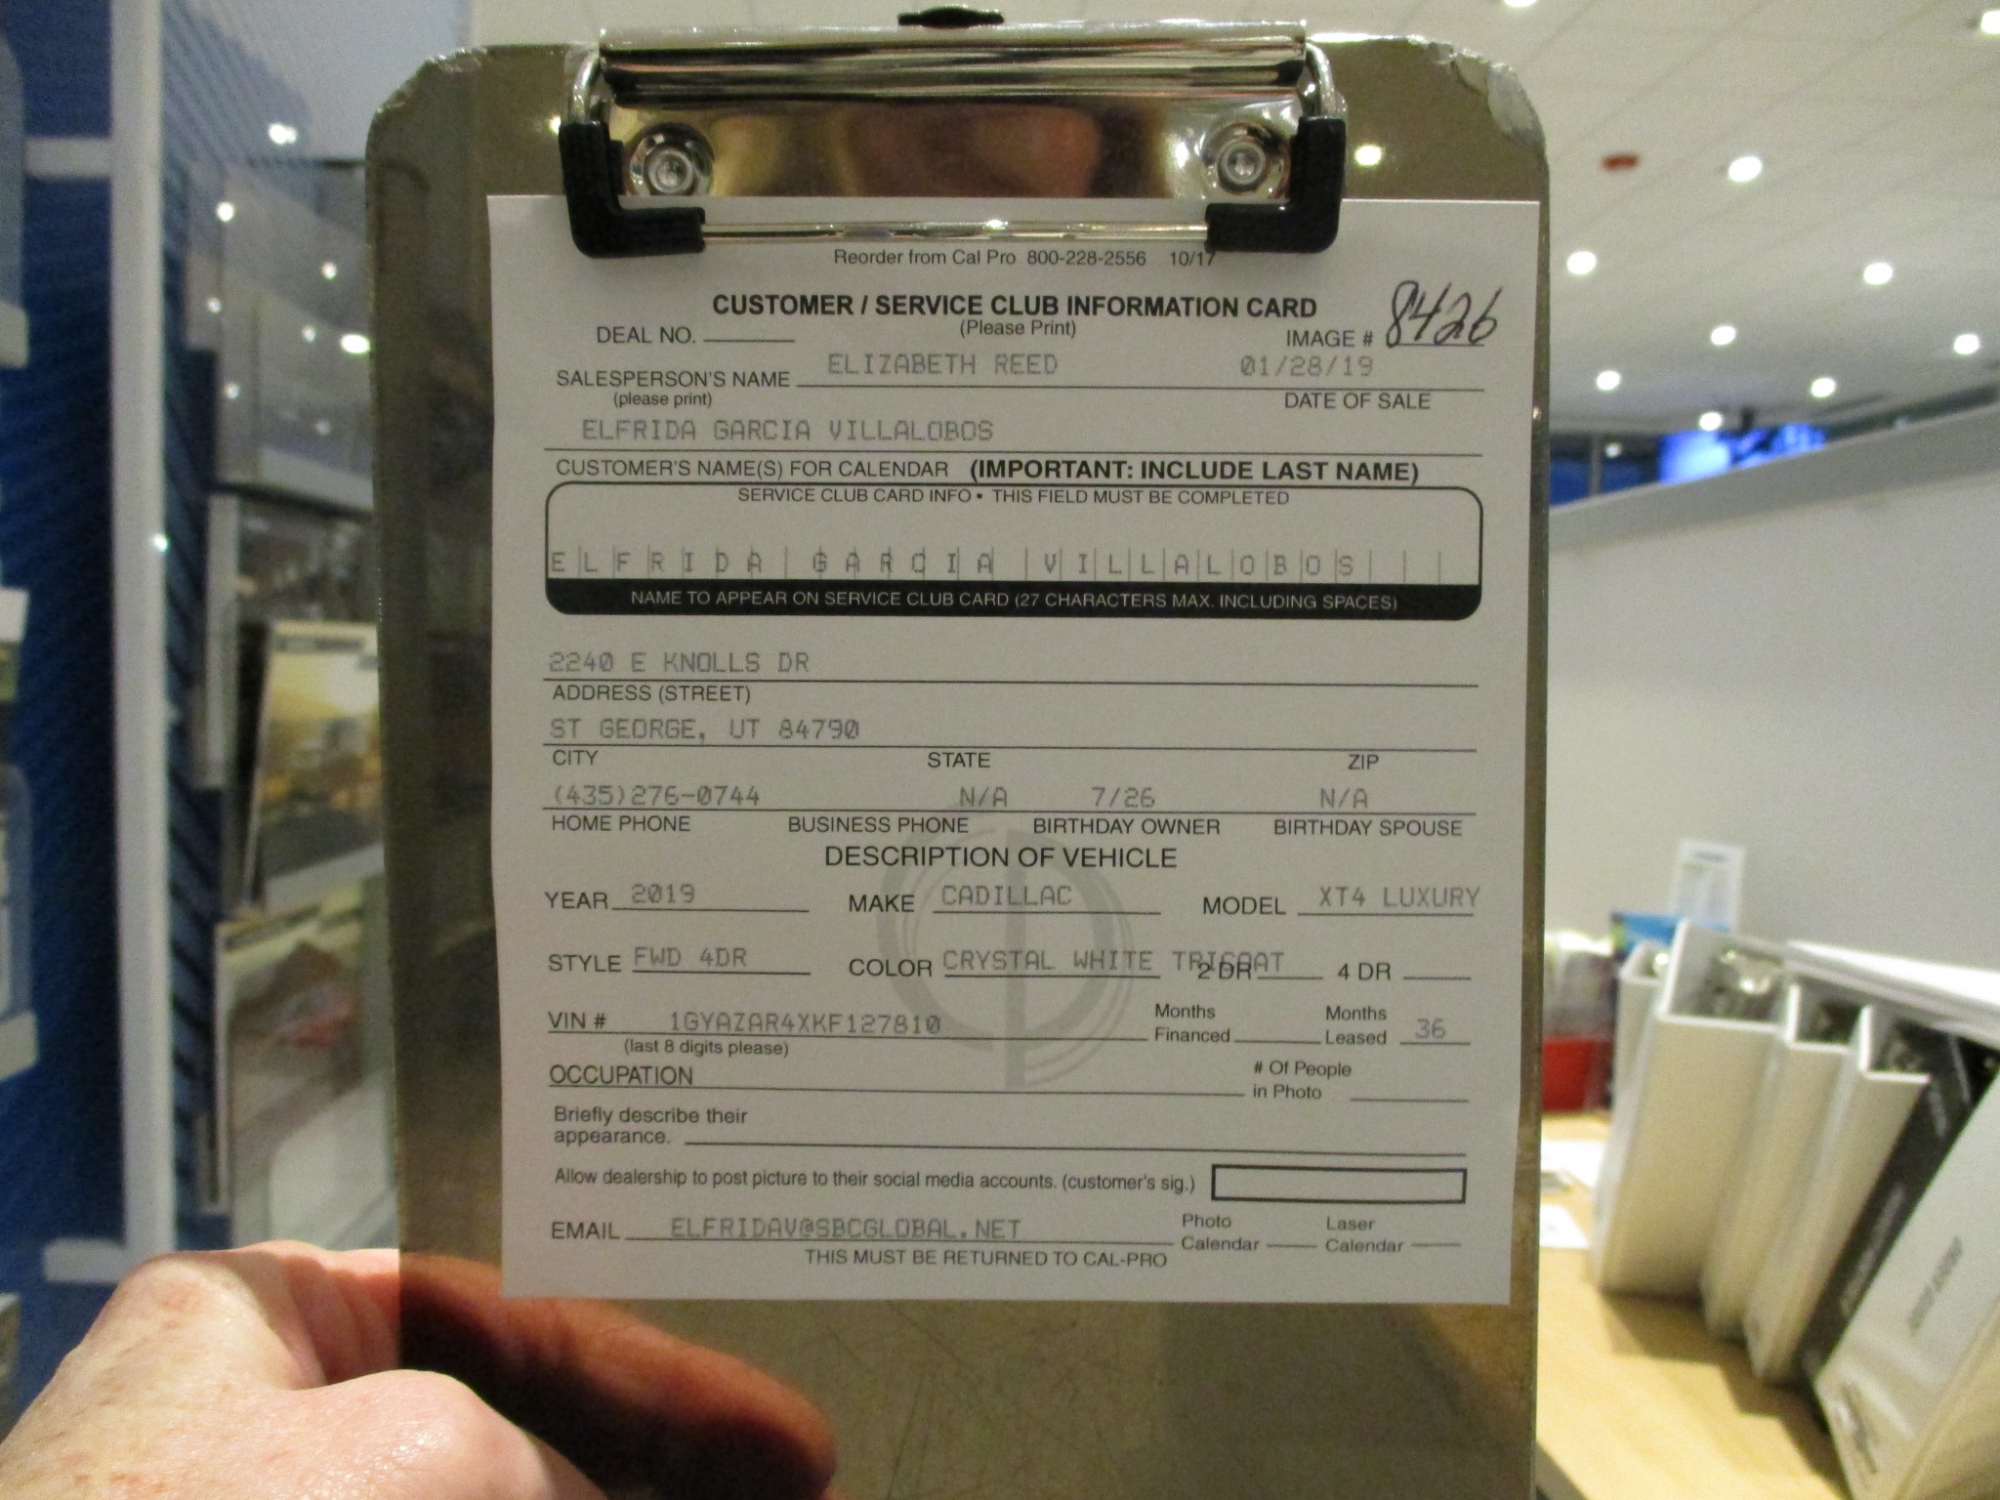 Reorder from Cal Pro 800-228-2556 10/17
CUSTOMER / SERVICE CLUB INFORMATION CARD
(Please Print)
DEAL NO. IMAGE # 8426
ELIZABETH REED 01/28/19
SALESPERSON'S NAME
(please print) DATE OF SALE
ELFRIDA GARCIA VILLALOBOS
CUSTOMER'S NAME(S) FOR CALENDAR (IMPORTANT: INCLUDE LAST NAME)
SERVICE CLUB CARD INFO • THIS FIELD MUST BE COMPLETED
ELFRIDA GARCIA VILLALOBOS
NAME TO APPEAR ON SERVICE CLUB CARD (27 CHARACTERS MAX. INCLUDING SPACES)
2240 E KNOLLS DR
ADDRESS (STREET)
ST GEORGE, UT 84790
CITY STATE ZIP
(435)276-0744 N/A 7/26 N/A
HOME PHONE BUSINESS PHONE BIRTHDAY OWNER BIRTHDAY SPOUSE
DESCRIPTION OF VEHICLE
YEAR 2019 MAKE CADILLAC MODEL XT4 LUXURY
STYLE FWD 4DR COLOR CRYSTAL WHITE TRICOAT 2 DR 4 DR
VIN # 1GYAZAR4XKF127810 Months Financed Months Leased 36
(last 8 digits please)
OCCUPATION # Of People in Photo
Briefly describe their
appearance.
Allow dealership to post picture to their social media accounts. (customer's sig.)
EMAIL ELFRIDAV@SBCGLOBAL.NET Photo Calendar Laser Calendar
THIS MUST BE RETURNED TO CAL-PRO